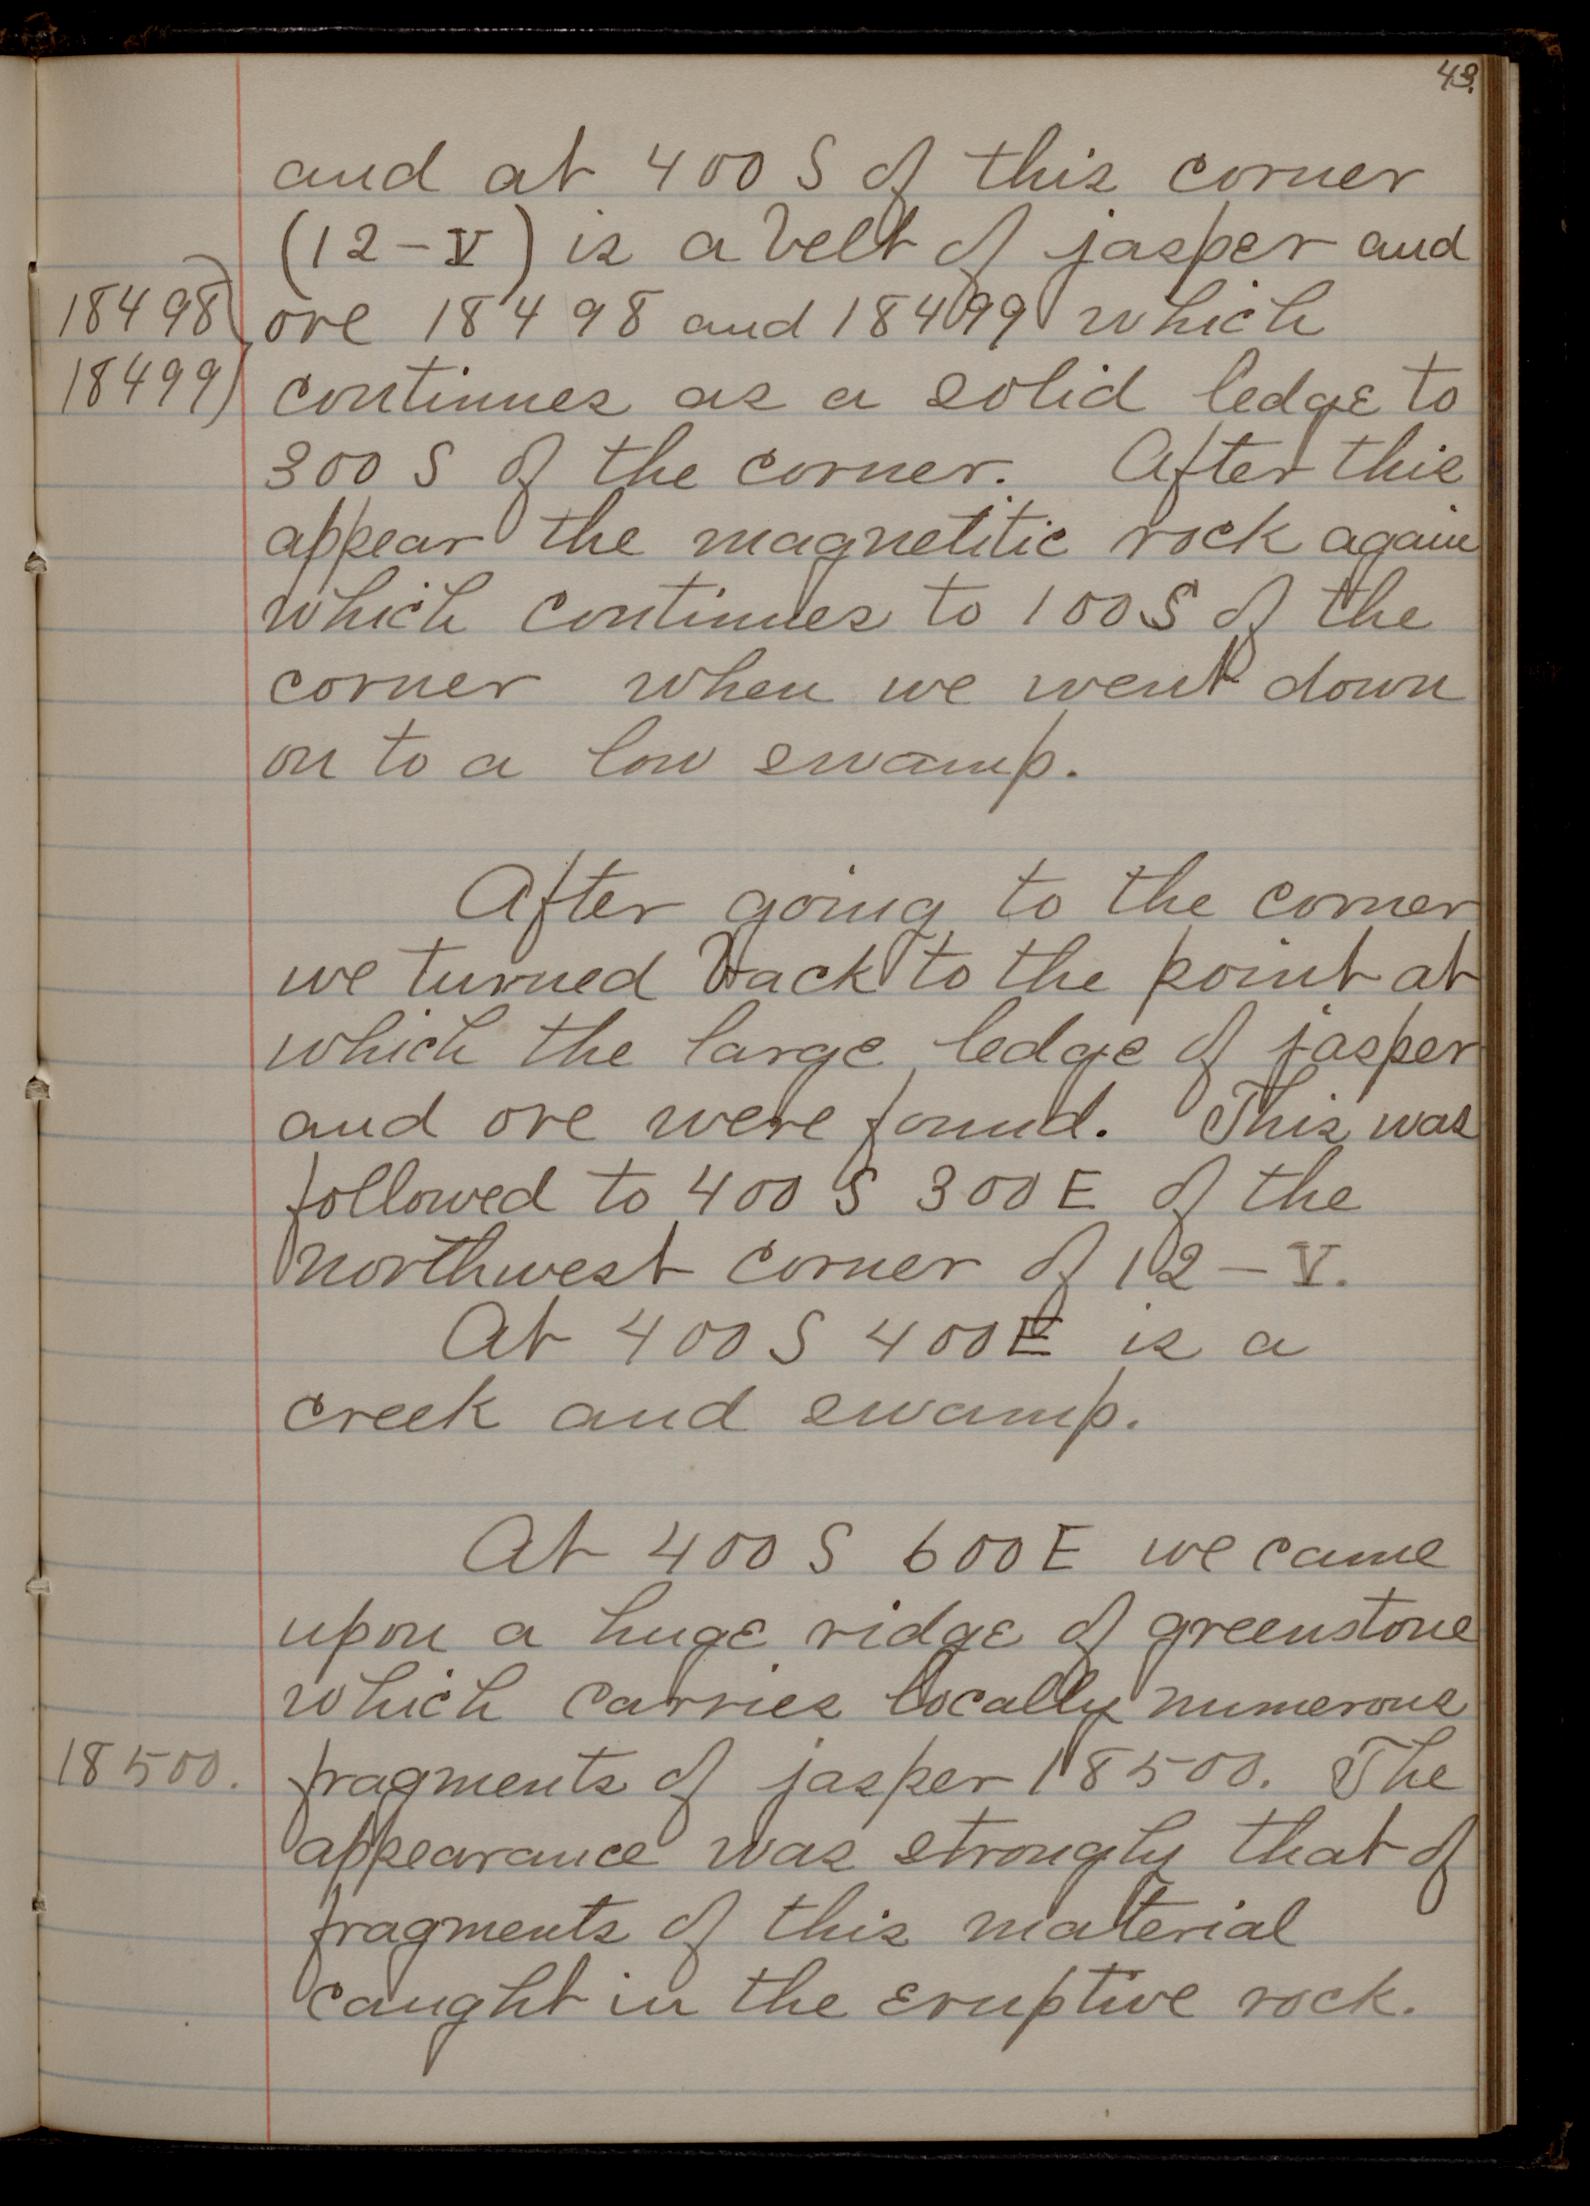 43.
and at 400 S of this corner
(12 - V) is a belt of jasper and
18498) ore 18498 and 18499 which
18499) continues as a solid ledge to
300 S of the corner. After this
appear the magnetitic rock again
which continues to 100 S of the
corner when we went down
on to a low swamp.
After going to the corner
we turned back to the point at
which the large ledge of jasper
and ore were found. This was
followed to 400 S 300 E of the
northwest corner of 12 - V.
At 400 S 400 E is a
creek and swamp.
At 400 S 600 E we came
upon a huge ridge of greenstone
which carries locally numerous
18500. fragments of jasper 18500. The
appearance was strongly that of
fragments of this material
caught in the eruptive rock.